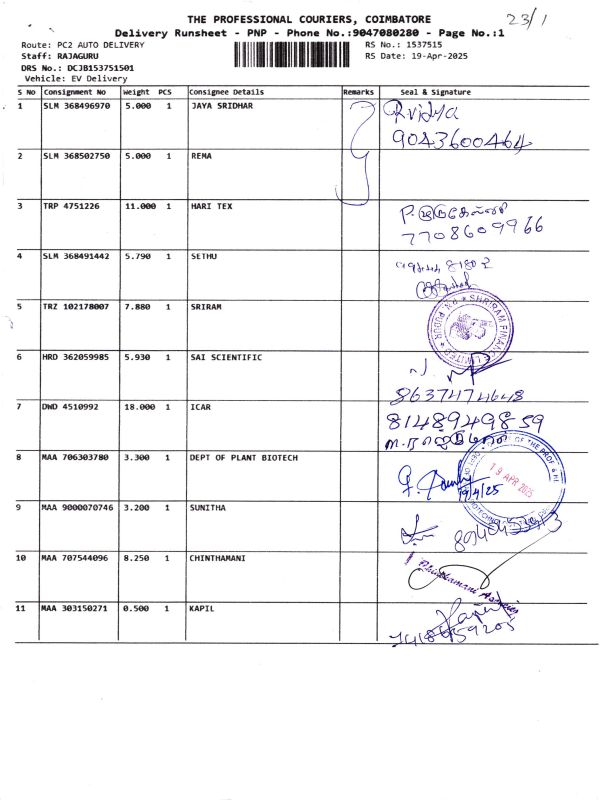 THE PROFESSIONAL COURIERS, COIMBATORE
23/1
Delivery Runsheet - PNP - Phone No.:9047080280 - Page No.:1
Route: PC2 AUTO DELIVERY RS No.: 1537515
Staff: RAJAGURU RS Date: 19-Apr-2025
DRS No.: DCJB153751501
Vehicle: EV Delivery
S No Consignment No Weight PCS Consignee Details Remarks Seal & Signature
1 SLM 368496970 5.000 1 JAYA SRIDHAR R.vidya
9043600464
2 SLM 368502750 5.000 1 REMA
3 TRP 4751226 11.000 1 HARI TEX
7708609966
4 SLM 368491442 5.790 1 SETHU
5 TRZ 102178007 7.880 1 SRIRAM
SHRIRAM FINANCE LIMITED
6 HRD 362059985 5.930 1 SAI SCIENTIFIC
8637474648
7 DWD 4510992 18.000 1 ICAR 8148949859
8 MAA 706303780 3.300 1 DEPT OF PLANT BIOTECH
19 APR 2025
19/4/25
9 MAA 9000070746 3.200 1 SUNITHA
10 MAA 707544096 8.250 1 CHINTHAMANI
11 MAA 303150271 0.500 1 KAPIL